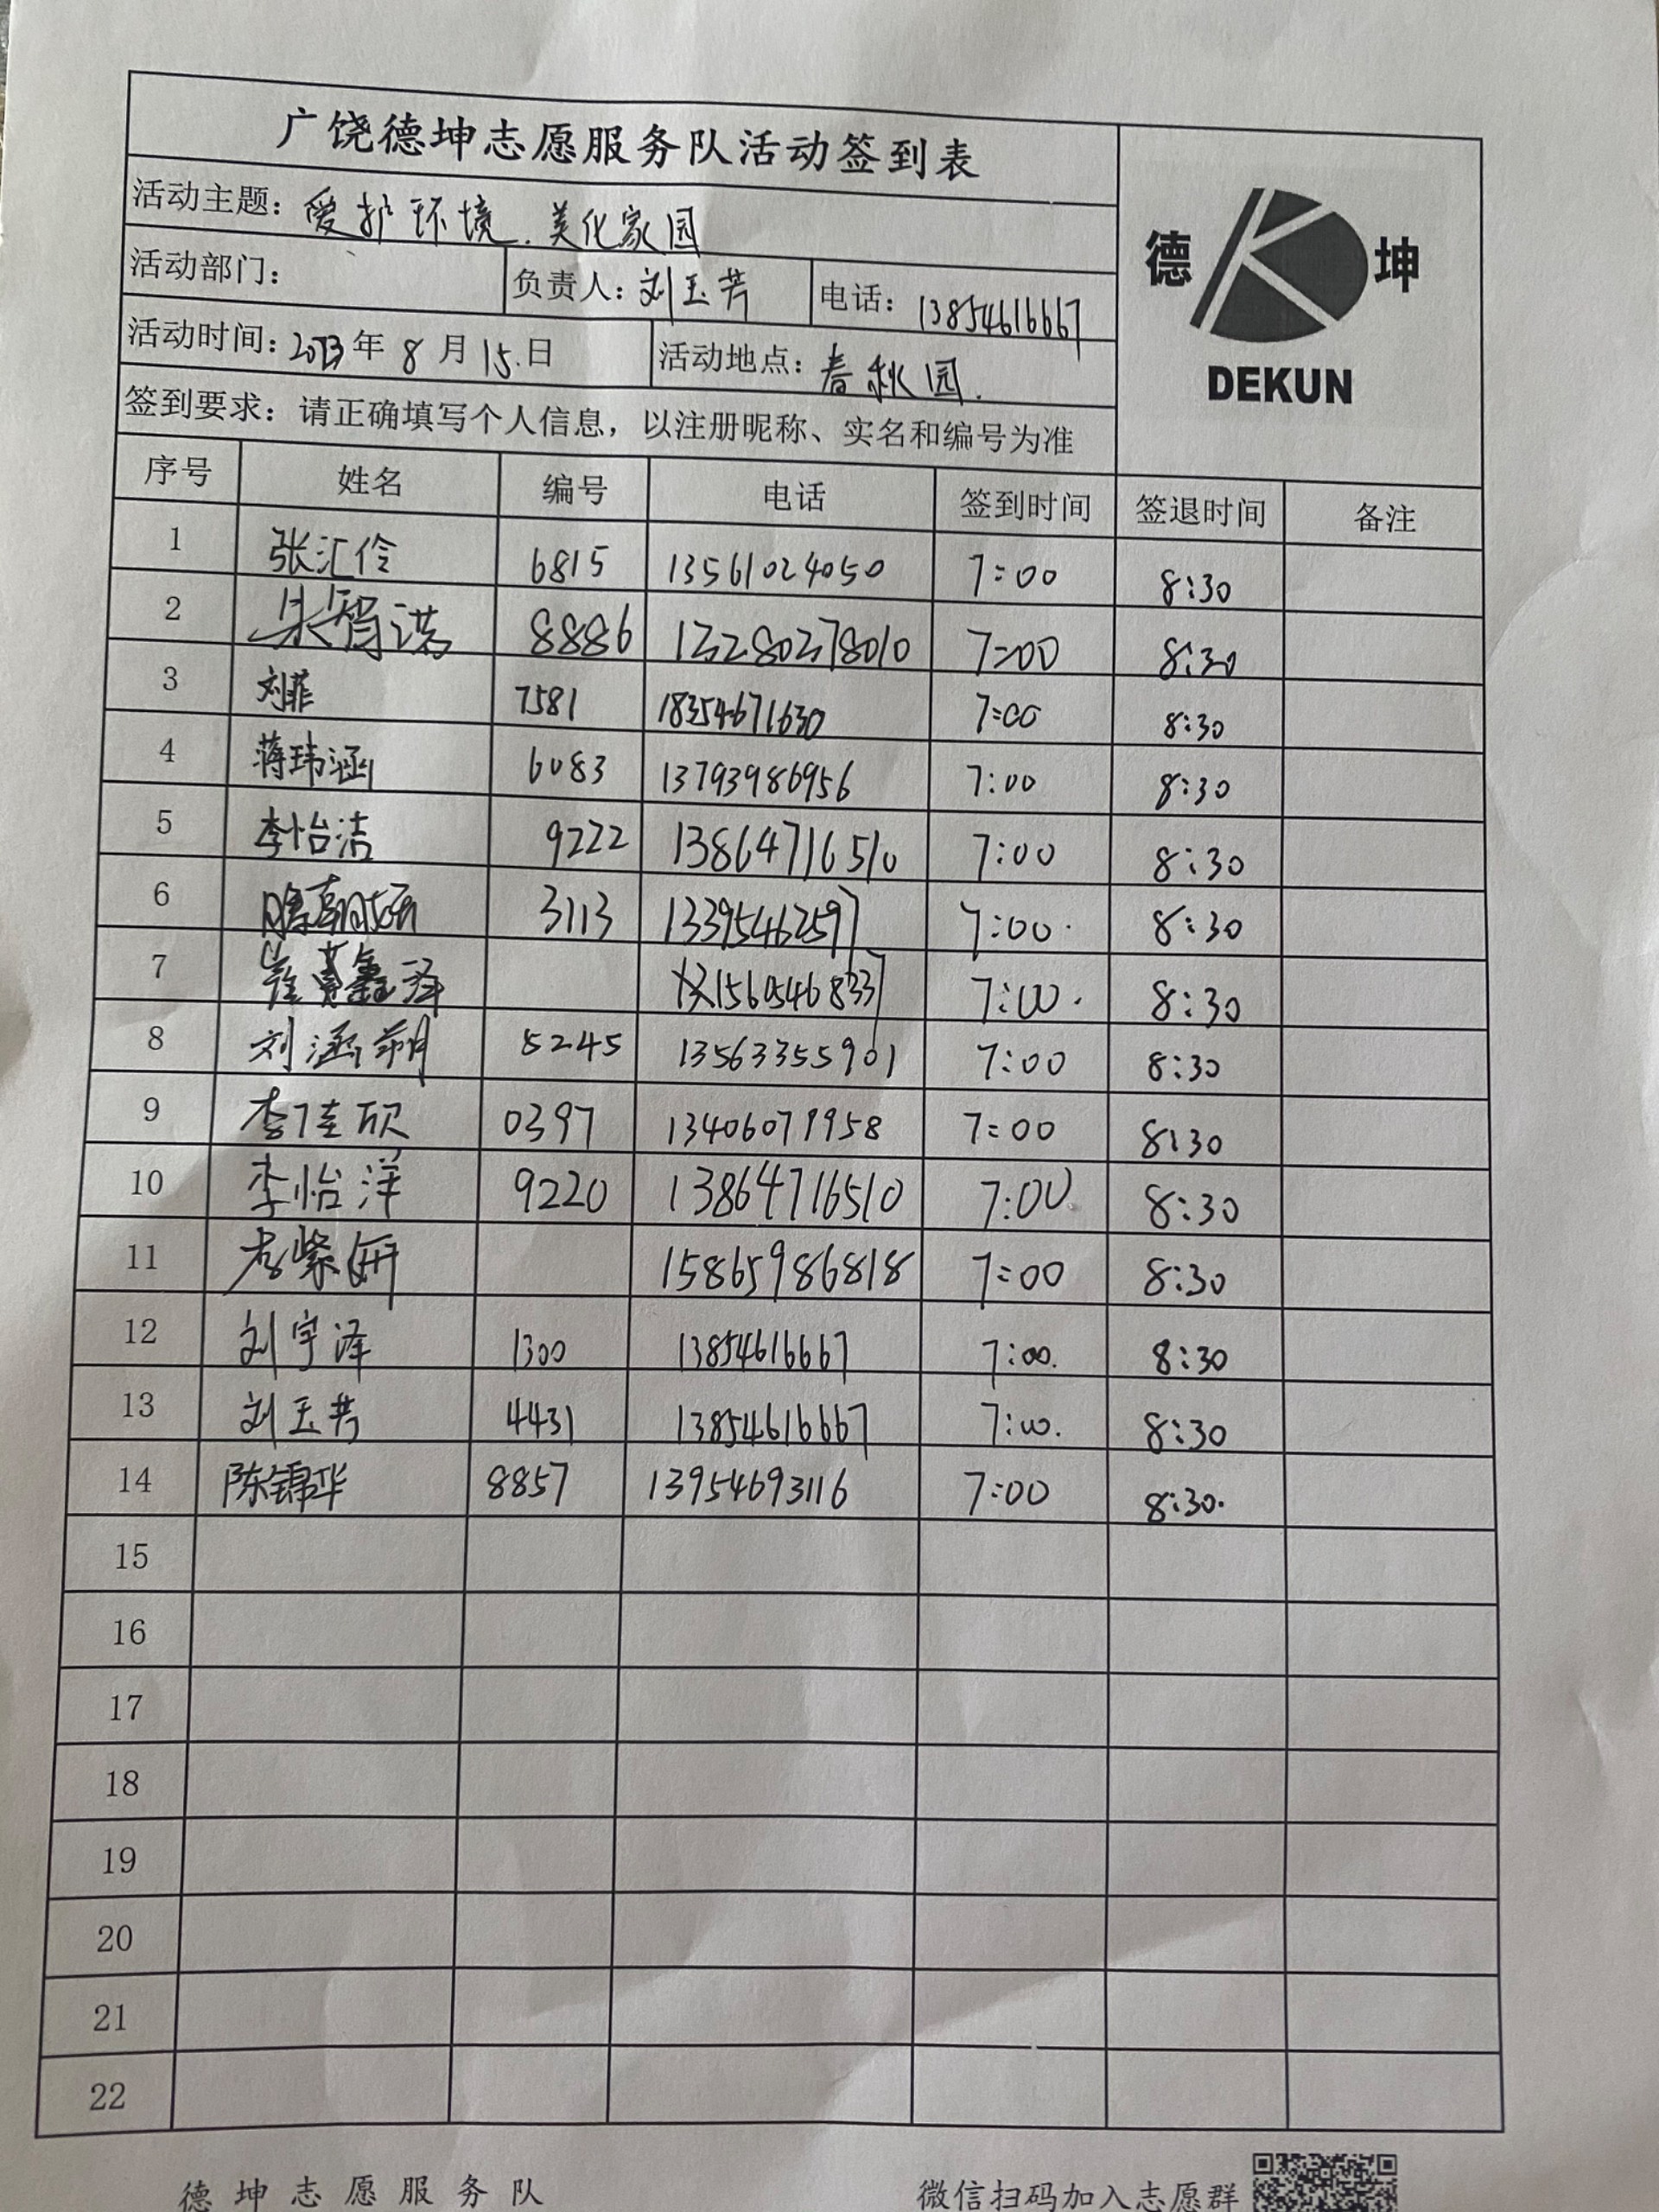 广饶德坤志愿服务队活动签到表
活动主题：爱护环境.美化家园
德 坤
DEKUN
活动部门： 负责人：刘玉芳 电话：13854616667
活动时间：2023年8月15.日 活动地点：春秋园.
签到要求：请正确填写个人信息，以注册昵称、实名和编号为准
序号 姓名 编号 电话 签到时间 签退时间 备注
1 张汇伶 6815 13561024050 7:00 8:30
2 朱智诺 8886 13280278010 7:00 8:30
3 刘菲 7581 18354671630 7:00 8:30
4 蒋玮涵 6083 13793986956 7:00 8:30
5 李怡洁 9222 13864716510 7:00 8:30
6 3113 13395462597 7:00 8:30
7 15605468337 7:00 8:30
8 刘涵朔 5245 13563355901 7:00 8:30
9 李佳欣 0397 13406079958 7:00 8:30
10 李怡洋 9220 13864716510 7:00 8:30
11 紫妍 15865986818 7:00 8:30
12 刘宇泽 1300 13854616667 7:00. 8:30
13 刘玉芳 4431 13854616667 7:00. 8:30
14 陈锦华 8857 13954693116 7:00 8:30.
15
16
17
18
19
20
21
22
德坤志愿服务队 微信扫码加入志愿群